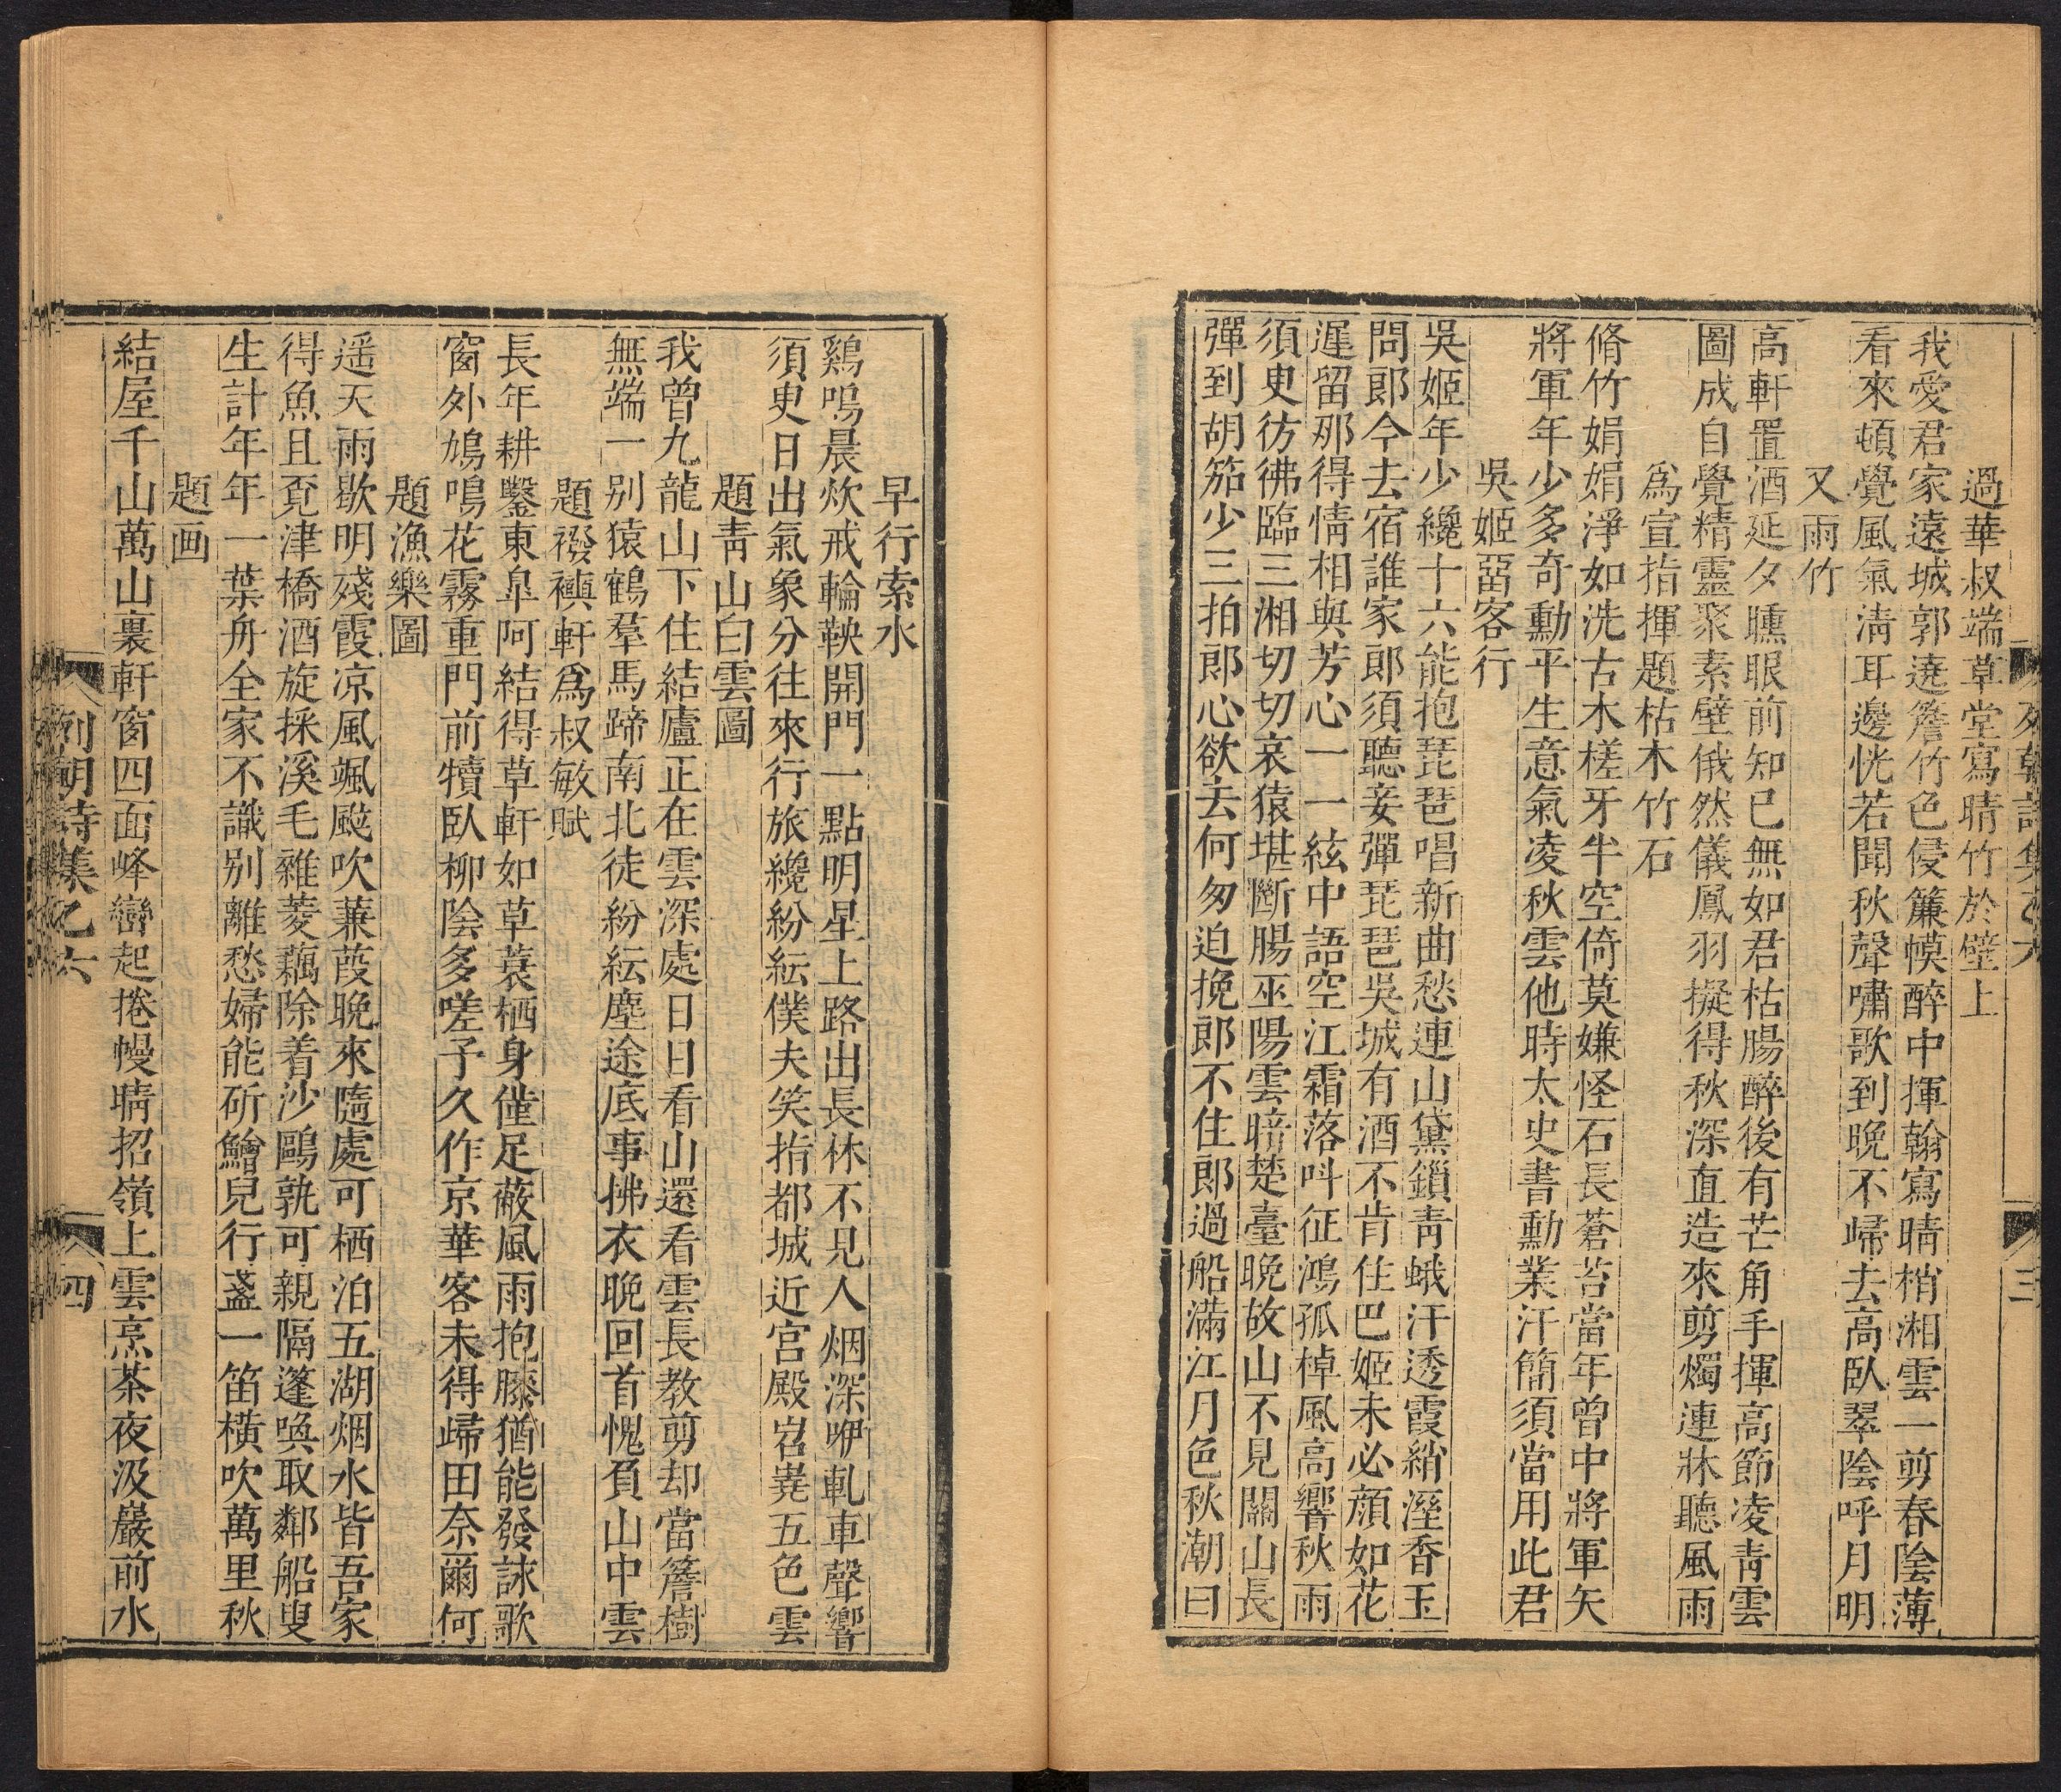 過華叔端草堂寫晴竹於壁上
我愛君家遠城郭遶簷竹色侵簾幙醉中揮翰寫晴梢湘雲一剪春陰薄
看來頓覺風氣清耳邊恍若聞秋聲嘯歌到晚不歸去高臥翠陰呼月明
又雨竹
高軒置酒延夕曛眼前知已無如君枯腸醉後有芒角手揮高節凌靑雲
圖成自覺精靈聚素壁俄然儀鳳羽擬得秋深直造來剪燭連牀聽風雨
爲宣指揮題枯木竹石
脩竹娟娟淨如洗古木槎牙半空倚莫嫌怪石長蒼苔當年曾中將軍矢
將軍年少多奇勳平生意氣凌秋雲他時太史書勳業汗簡須當用此君
吳姬畱客行
吳姬年少纔十六能抱琵琶唱新曲愁連山黛鎖靑蛾汗透霞綃溼香玉
問郎今去宿誰家郎須聽妾彈琵琶吳城有酒不肯住巴姬未必顔如花
遲留那得情相與芳心一一絃中語空江霜落呌征鴻孤棹風高響秋雨
須臾彷彿臨三湘切切哀猿堪斷腸巫陽雲暗楚臺晚故山不見關山長
彈到胡笳少三拍郎心欲去何匆迫挽郎不住郎過船滿江月色秋潮白
列朝詩集乙六
三
早行索水
鷄鳴晨炊戒輪鞅開門一點明星上路出長林不見人烟深咿軋車聲響
須臾日出氣象分往來行旅纔紛紜僕夫笑指都城近宮殿岧嶤五色雲
題靑山白雲圖
我曾九龍山下住結廬正在雲深處日日看山還看雲長教剪却當簷樹
無端一别猿鶴羣馬蹄南北徒紛紜塵途底事拂衣晚回首愧負山中雲
題襏襫軒爲叔敏賦
長年耕鑿東皐阿結得草軒如草蓑栖身僅足蔽風雨抱膝猶能發詠歌
窗外鳩鳴花霧重門前犢臥柳陰多嗟子久作京華客未得歸田奈爾何
題漁樂圖
遥天雨歇明殘霞凉風颯颯吹蒹葭晚來隨處可栖泊五湖烟水皆吾家
得魚且覓津橋酒旋採溪毛雜菱藕除着沙鷗孰可親隔篷喚取鄰船叟
生計年年一葉舟全家不識别離愁婦能斫鱠兒行盞一笛橫吹萬里秋
題画
結屋千山萬山裏軒窗四面峰巒起捲幔晴招嶺上雲烹茶夜汲巖前水
列朝詩集乙六
四